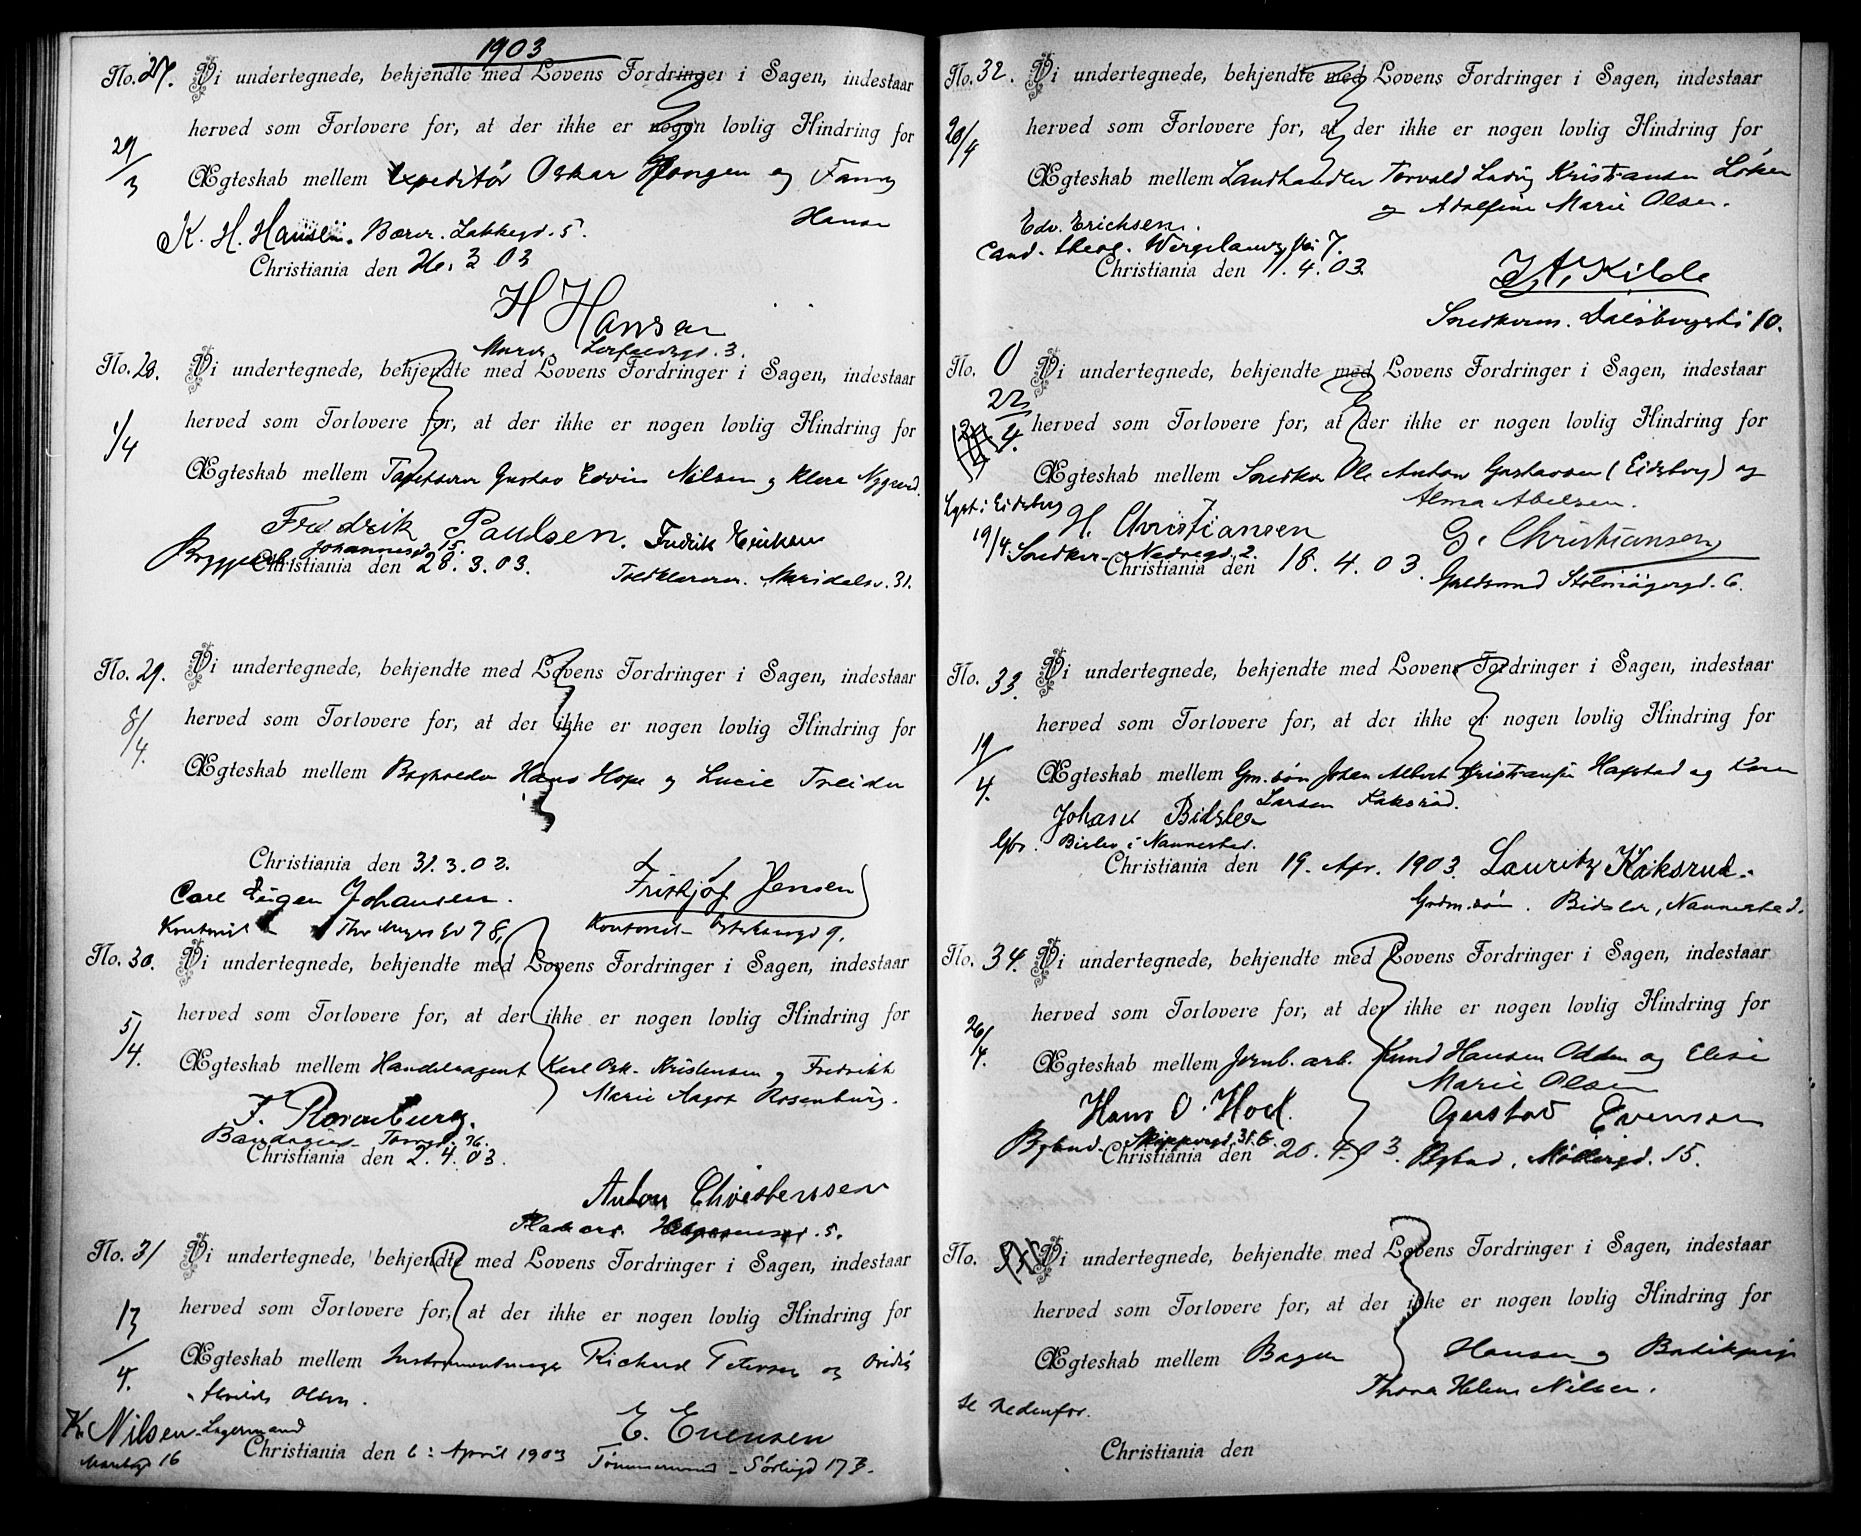 1903
No. 27. Vi undertegnede, bekjendte med Lovens Fordringer i Sagen, indestaar
herved som Forlovere for, at der ikke er nogen lovlig Hindring for
29/3
Ægteskab mellem Expeditør Oskar Haagen og Fanny
Hansen
K. H. Hansen. Bærer. Lakkegd. 5.
Christiania den 26. 3 03
H Hansen
Murer 3.
No. 28. Vi undertegnede, bekjendte med Lovens Fordringer i Sagen, indestaar
herved som Forlovere for, at der ikke er nogen lovlig Hindring for
1/4
Ægteskab mellem Tapetserer Gustav Edvin Nilsen og Klara Nygaard.
Fredrik Paulsen. Fredrik Eriksen
Johannesgd. 15.
Christiania den 28. 3. 03. Maridalsv. 31.
No. 29. Vi undertegnede, bekjendte med Lovens Fordringer i Sagen, indestaar
herved som Forlovere for, at der ikke er nogen lovlig Hindring for
8/4.
Ægteskab mellem Bogholder Hans Hope og Lucie Treider
Christiania den 31. 3. 03.
Carl Eugen Johansen. Fritjof Jensen
Kontorist Thv Meyers Gd 78. Kontorist 9.
No. 30. Vi undertegnede, bekjendte med Lovens Fordringer i Sagen, indestaar
herved som Forlovere for, at der ikke er nogen lovlig Hindring for
5/4.
Ægteskab mellem Handelsagent Karl Osk. Kristensen og Fredrikke
Marie Aagot Rosenburg.
F. Rosenburg.
Bandagist Torvgd. 26.
Christiania den 2. 4. 03.
Anton Christensen
5.
No. 31 Vi undertegnede, bekjendte med Lovens Fordringer i Sagen, indestaar
herved som Forlovere for, at der ikke er nogen lovlig Hindring for
13/4.
Ægteskab mellem Instrumentmager Rickard Petersen og
Olsen.
K. Nilsen Lagermand E. Evensen
16 Christiania den 6: April 1903 Tømmermand - 17 B.
No. 32. Vi undertegnede, bekjendte med Lovens Fordringer i Sagen, indestaar
herved som Forlovere for, at der ikke er nogen lovlig Hindring for
20/4
Ægteskab mellem Landhandler Torvald Ludvig Kristiansen Løken
og Adolfine Marie Olsen.
Edv. Erichsen.
Cand. theol. 7.
Christiania den 17. 4. 03. J. A. Kilde
Snedkerm. Dalsbergsti 10.
No. 0 Vi undertegnede, bekjendte med Lovens Fordringer i Sagen, indestaar
herved som Forlovere for, at der ikke er nogen lovlig Hindring for
22/4.
Ægteskab mellem Snedker Ole Anton Gustavsen (Eidsberg) og
Alma Abelsen.
Lyst i Eidsberg
19/4. H. Christiansen G. Christiansen
Snedker Nedregd. 2.
Christiania den 18. 4. 03. Gaardsmand 6.
No. 33. Vi undertegnede, bekjendte med Lovens Fordringer i Sagen, indestaar
herved som Forlovere for, at der ikke er nogen lovlig Hindring for
19/4.
Ægteskab mellem Gm. søn Johan Albert Kristiansen Hafstad og Karen
Larsen Kaksrud.
Johan Bidsler
Gbr. Bislev i Nannestad.
Christiania den 19. Apr. 1903. Lauritz Kaksrud.
Grdm. søn. Bidsler, Nannestad.
No. 34. Vi undertegnede, bekjendte med Lovens Fordringer i Sagen, indestaar
herved som Forlovere for, at der ikke er nogen lovlig Hindring for
26/4.
Ægteskab mellem Jernb. arb. Knud Hansen Odden og Elise
Marie Olsen
Hans O. Hoel. Gustav Evensen
Bybud. Skippergd. 31. b.
Christiania den 20. 4. 03. Bybud. Møllergd. 15.
No. Vi undertegnede, bekjendte med Lovens Fordringer i Sagen, indestaar
herved som Forlovere for, at der ikke er nogen lovlig Hindring for
Ægteskab mellem Bager Hansen og Butikpige
Thora Helene Nilsen.
se nedenfor.
Christiania den